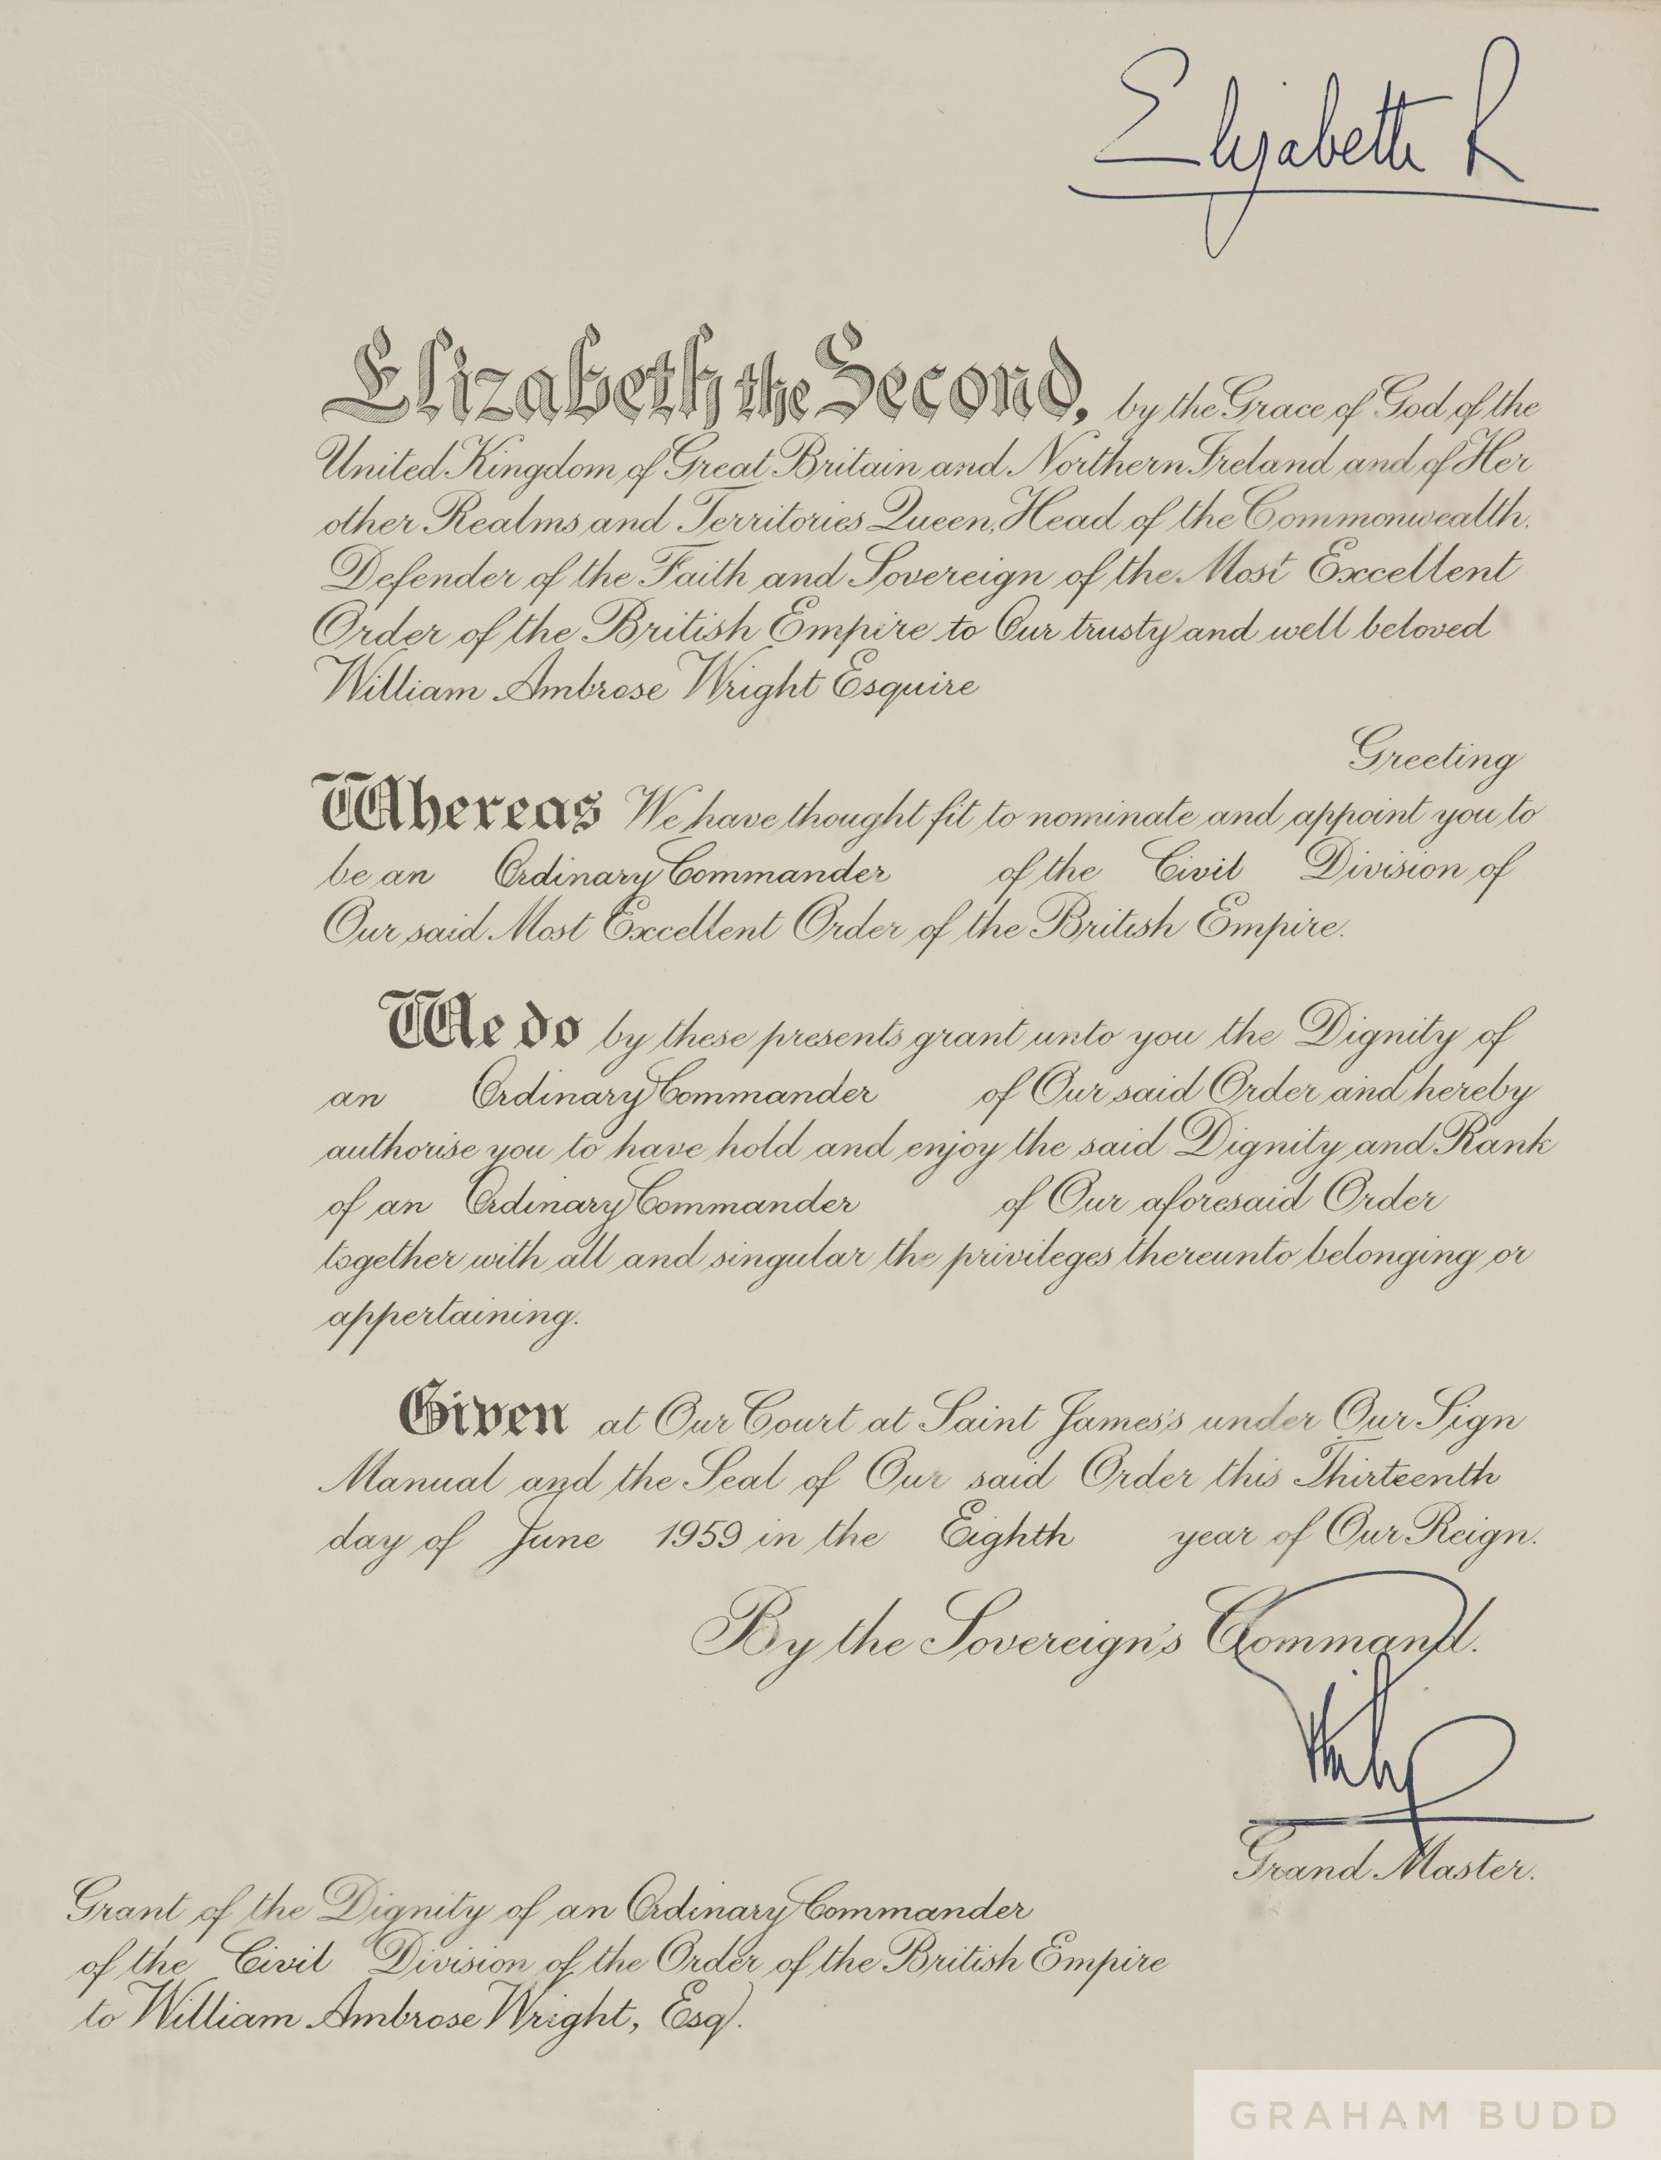 Elizabeth R
Elizabeth the Second, by the Grace of God of the
United Kingdom of Great Britain and Northern Ireland and of Her
other Realms and Territories Queen, Head of the Commonwealth,
Defender of the Faith and Sovereign of the Most Excellent
Order of the British Empire to Our trusty and well beloved
William Ambrose Wright Esquire
Greeting
Whereas We have thought fit to nominate and appoint you to
be an Ordinary Commander of the Civil Division of
Our said Most Excellent Order of the British Empire.
We do by these presents grant unto you the Dignity of
an Ordinary Commander of Our said Order and hereby
authorise you to have hold and enjoy the said Dignity and Rank
of an Ordinary Commander of Our aforesaid Order
together with all and singular the privileges thereunto belonging or
appertaining.
Given at Our Court at Saint James's under Our Sign
Manual and the Seal of Our said Order this Thirteenth
day of June 1959 in the Eighth year of Our Reign.
By the Sovereign's Command.
Philip
Grand Master.
Grant of the Dignity of an Ordinary Commander
of the Civil Division of the Order of the British Empire
to William Ambrose Wright, Esq.
GRAHAM BUDD